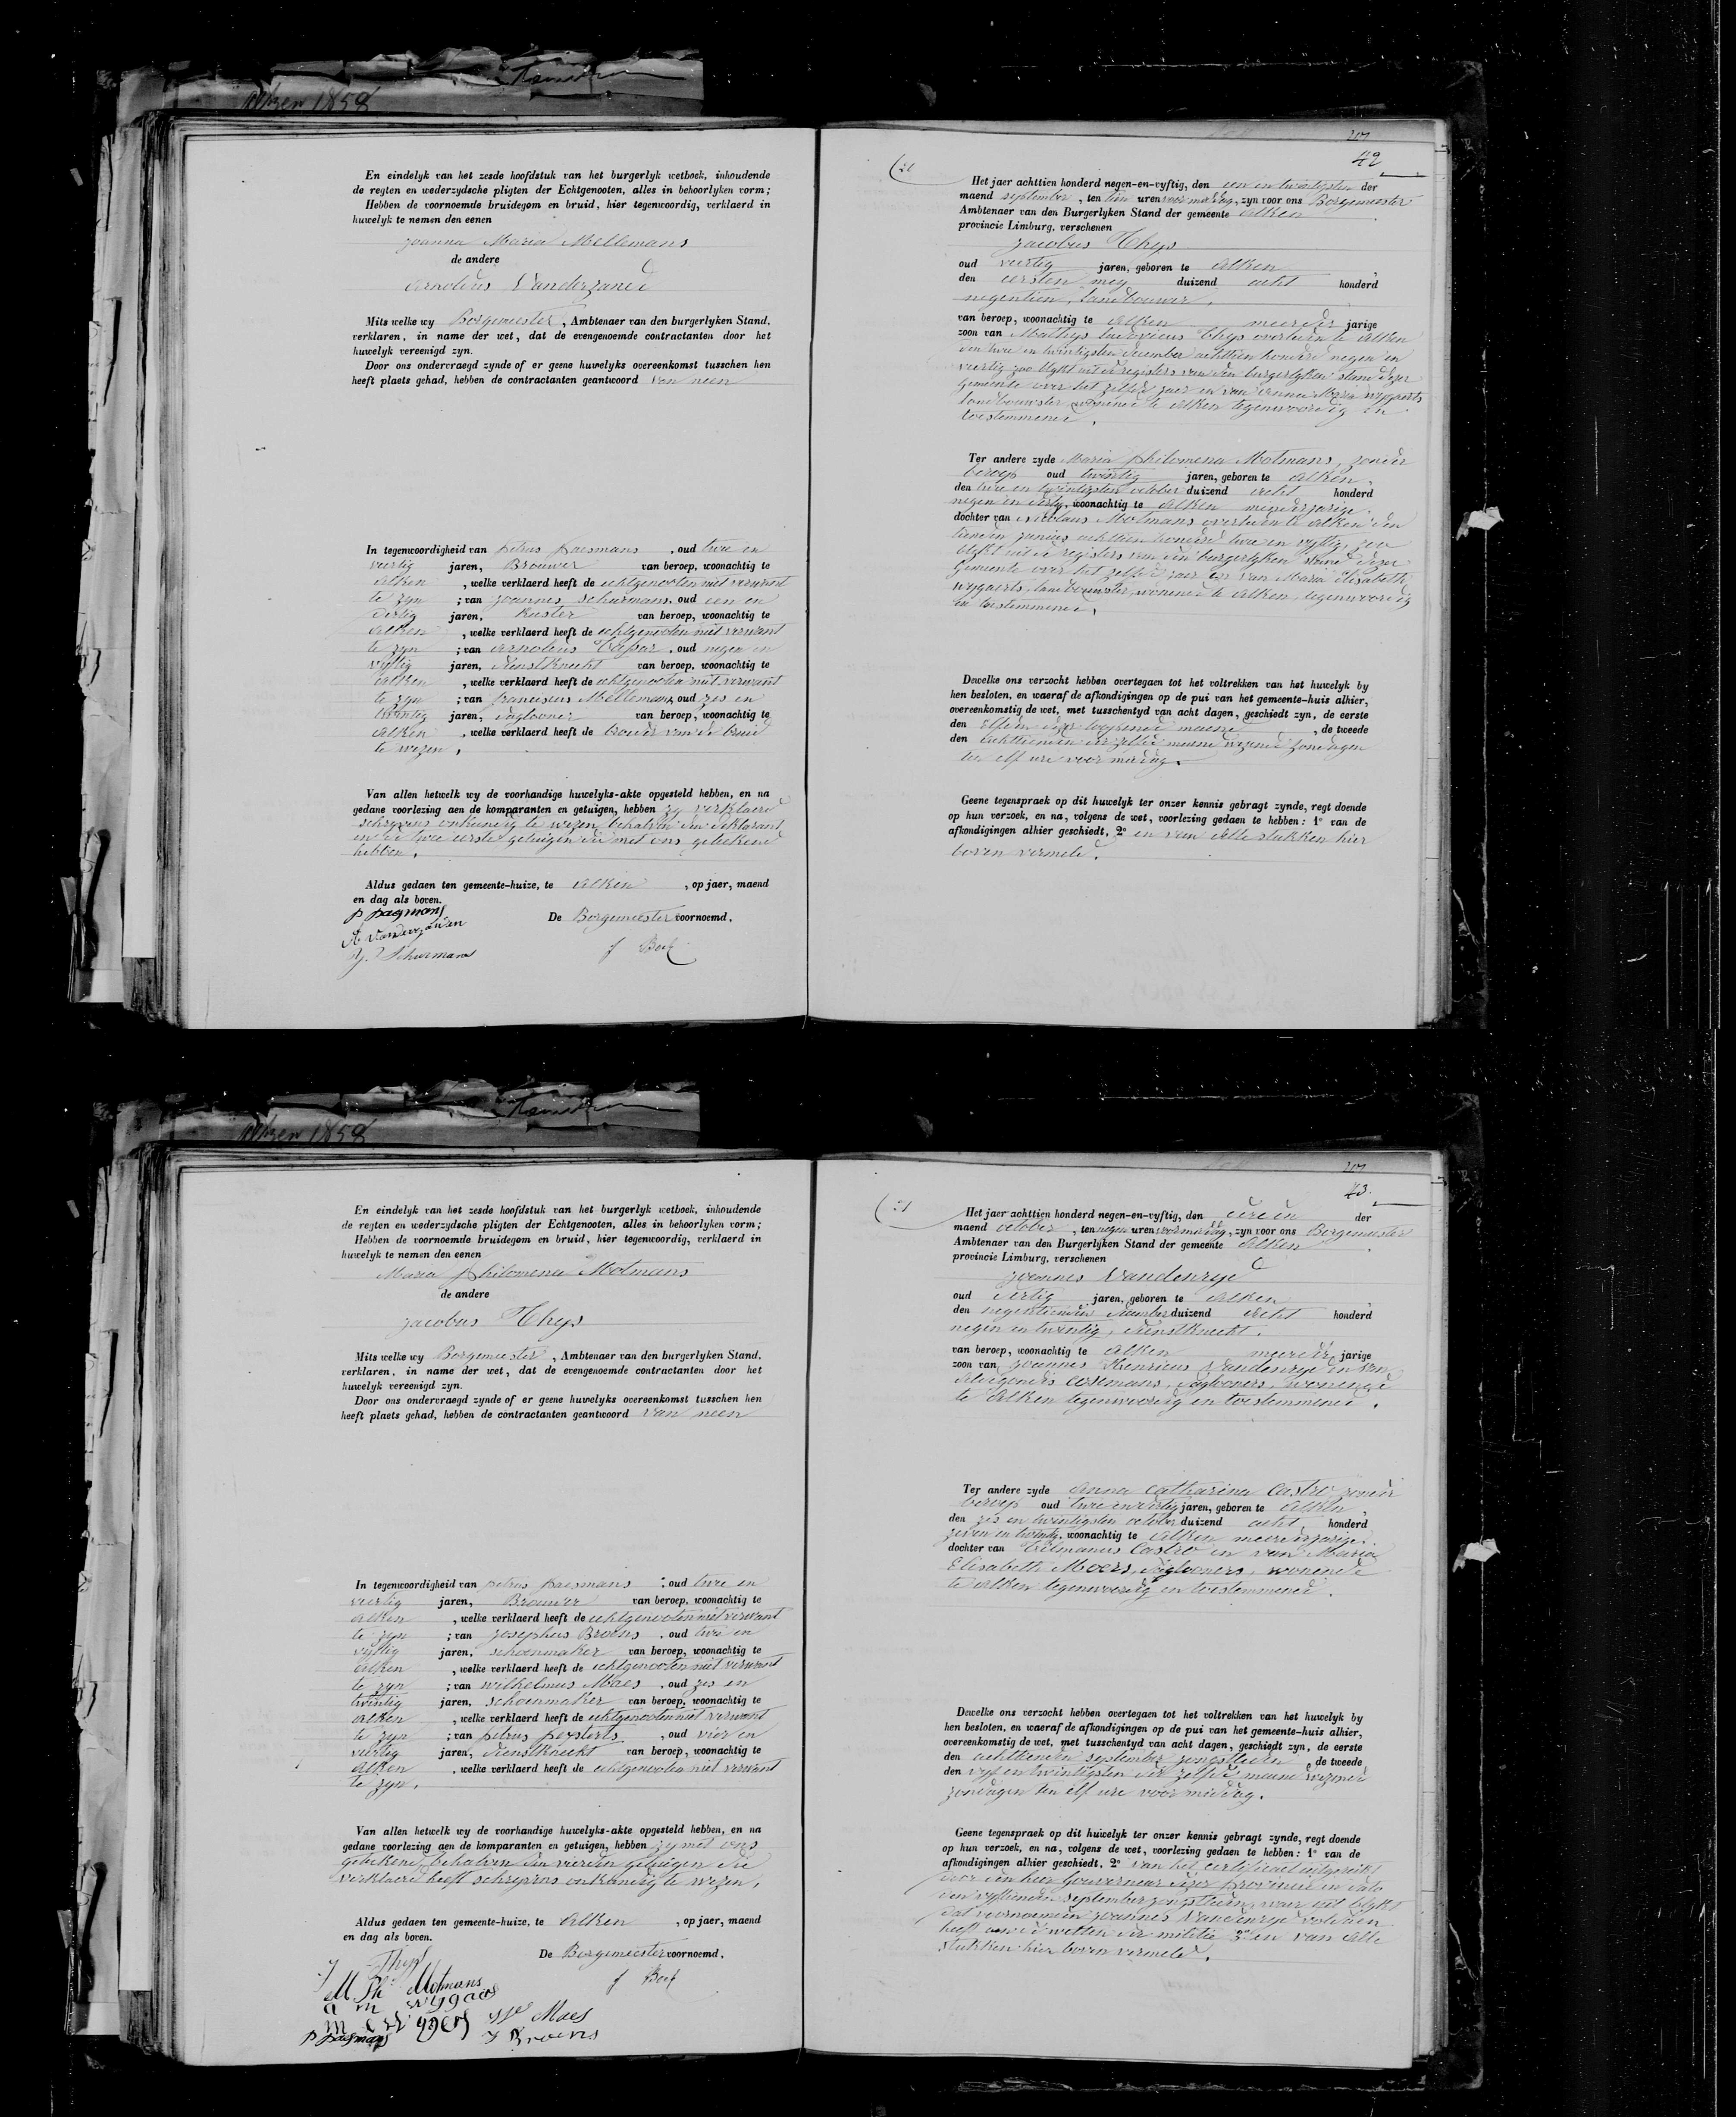 Alken 1858
En eindelyk van het zesde hoofdstuk van het burgerlyk wetboek, inhoudende
de regten en wederzydsche pligten der Echtgenooten, alles in behoorlyken vorm;
Hebben de voornoemde bruidegom en bruid, hier tegenwoordig, verklaerd in
huwelyk te nemen den eenen
Joanna Maria Mellemans
de andere
Arnoldus Vanderzande
Mits welke wy Borgemeester, Ambtenaer van den burgerlyken Stand,
verklaren, in name der wet, dat de evengenoemde contractanten door het
huwelyk vereenigd zyn.
Door ons ondervraegd zynde of er geene huwelyks overeenkomst tusschen hen
heeft plaets gehad, hebben de contractanten geantwoord van neen
In tegenwoordigheid van petrus paesmans , oud twee en
veertig jaren, Brouwer van beroep, woonachtig te
Alken , welke verklaerd heeft de echtgenooten niet verwant
te zyn ; van joannes schurmans, oud een en
dertig jaren, Kuster van beroep, woonachtig te
Alken , welke verklaerd heeft de echtgenooten niet verwant
te zyn ; van Arnoldus , oud negen en
vyftig jaren, dienstknecht van beroep, woonachtig te
Alken , welke verklaerd heeft de echtgenooten niet verwant
te zyn ; van franciscus Mellemans, oud zes en
twintig jaren, daglooner van beroep, woonachtig te
Alken , welke verklaerd heeft de broeder van de bruid
te wezen.
Van allen hetwelk wy de voorhandige huwelyks-akte opgesteld hebben, en na
gedane voorlezing aen de komparanten en getuigen, hebben zy verklaerd
schryvens onkundig te wezen behalven den deklarant
en de twee eerste getuigen die met ons geteekend
hebben.
Aldus gedaen ten gemeente-huize, te Alken , op jaer, maend
en dag als boven.
De Borgemeester voornoemd.
p pasmans
A vanderzanden
J. Schurmans
42
Het jaer achttien honderd negen-en-vyftig, den een en twintigsten der
maend september , ten tien uren voormiddag, zyn voor ons Borgemeester
Ambtenaer van den Burgerlyken Stand der gemeente Alken
provincie Limburg, verschenen
Jacobus Thys
oud veertig jaren, geboren te Alken,
den eersten mey duizend acht honderd
negentien, landbouwer.
van beroep, woonachtig te Alken meerder jarige
zoon van Mathys Ludovicus Thys overleden te Alken
den twee en twintigsten december achttien honderd negen en
veertig zoo blykt uit de registers van den burgerlyken stand dezer
gemeente over het zelfde jaer en van Anna Maria wygaerts
landbouwster wonende te Alken tegenwoordig en
toestemmende.
Ter andere zyde Maria philomena Motmans, zonder
beroep oud twintig jaren, geboren te Alken,
den twee en twintigsten october duizend acht honderd
negen en dertig, woonachtig te Alken minderjarige
dochter van Nicolaus Motmans overleden te Alken den
tienden junius achttien honderd twee en vyftig, zoo
blykt uit de registers van den burgerlyken stand dezer
Gemeente over het zelfde jaer en van Maria Elisabeth
wygaerts, landbouwster, wonende te Alken, tegenwoordig
en toestemmende.
Dewelke ons verzocht hebben overtegaen tot het voltrekken van het huwelyk by
hen besloten, en waeraf de afkondigingen op de pui van het gemeente-huis alhier,
overeenkomstig de wet, met tusschentyd van acht dagen, geschiedt zyn, de eerste
den Elfden dezer loopende maend , de tweede
den achttienden der zelfde maend wezende zondagen
ten elf ure voor middag.
Geene tegenspraek op dit huwelyk ter onzer kennis gebragt zynde, regt doende
op hun verzoek, en na, volgens de wet, voorlezing gedaen te hebben: 1° van de
afkondigingen alhier geschiedt, 2° en van alle stukken hier
boven vermeld.
Alken 1858
En eindelyk van het zesde hoofdstuk van het burgerlyk wetboek, inhoudende
de regten en wederzydsche pligten der Echtgenooten, alles in behoorlyken vorm;
Hebben de voornoemde bruidegom en bruid, hier tegenwoordig, verklaerd in
huwelyk te nemen den eenen
Maria philomena Motmans
de andere
Jacobus Thys
Mits welke wy Borgemeester, Ambtenaer van den burgerlyken Stand,
verklaren, in name der wet, dat de evengenoemde contractanten door het
huwelyk vereenigd zyn.
Door ons ondervraegd zynde of er geene huwelyks overeenkomst tusschen hen
heeft plaets gehad, hebben de contractanten geantwoord van neen
In tegenwoordigheid van petrus paesmans , oud twee en
veertig jaren, Brouwer van beroep, woonachtig te
Alken , welke verklaerd heeft de echtgenooten niet verwant
te zyn ; van josephus Broens , oud twee en
vyftig jaren, schoenmaker van beroep, woonachtig te
Alken , welke verklaerd heeft de echtgenooten niet verwant
te zyn ; van wilhelmus Maes , oud zes en
twintig jaren, schoenmaker van beroep, woonachtig te
Alken , welke verklaerd heeft de echtgenooten niet verwant
te zyn ; van petrus , oud vier en
veertig jaren, dienstknecht van beroep, woonachtig te
Alken , welke verklaerd heeft de echtgenooten niet verwant
te zyn.
Van allen hetwelk wy de voorhandige huwelyks-akte opgesteld hebben, en na
gedane voorlezing aen de komparanten en getuigen, hebben zy met ons
geteekend, behalven den vierden getuigen die
verklaerd heeft schryvens onkundig te wezen.
Aldus gedaen ten gemeente-huize, te Alken , op jaer, maend
en dag als boven.
De Borgemeester voornoemd.
J Thys
M Ph Motmans
p pasmans
Maes
J Broens
43
Het jaer achttien honderd negen-en-vyftig, den derden der
maend october , ten negen uren voormiddag, zyn voor ons Borgemeester
Ambtenaer van den Burgerlyken Stand der gemeente Alken
provincie Limburg, verschenen
Joannes Vandenrye
oud dertig jaren, geboren te Alken
den negentienden december duizend acht honderd
negen en twintig, dienstknecht.
van beroep, woonachtig te Alken meerder jarige
zoon van Joannes Henricus Vandenrye en van
Aldegondis , dagloners, wonende
te Alken tegenwoordig en toestemmende.
Ter andere zyde Anna Catharina Castro zonder
beroep oud twee en dertig jaren, geboren te Alken,
den zes en twintigsten october duizend acht honderd
zeven en twintig, woonachtig te Alken meerderjarige
dochter van Tilmanus Castro en van Maria
Elisabeth Moers, dagloners, wonende
te Alken tegenwoordig en toestemmende.
Dewelke ons verzocht hebben overtegaen tot het voltrekken van het huwelyk by
hen besloten, en waeraf de afkondigingen op de pui van het gemeente-huis alhier,
overeenkomstig de wet, met tusschentyd van acht dagen, geschiedt zyn, de eerste
den achttienden september jongstleden , de tweede
den vyf en twintigsten der zelfde maend wezende
zondagen ten elf ure voor middag.
Geene tegenspraek op dit huwelyk ter onzer kennis gebragt zynde, regt doende
op hun verzoek, en na, volgens de wet, voorlezing gedaen te hebben: 1° van de
afkondigingen alhier geschiedt, 2° van het certificaet uitgereikt
door den heer Gouverneur dezer provincie in dato
den vyftienden september jongstleden, waer uit blykt
dat voornoemden joannes Vandenrye voldaen
heeft aen de wetten der militie 3° en van alle
stukken hier boven vermeld.